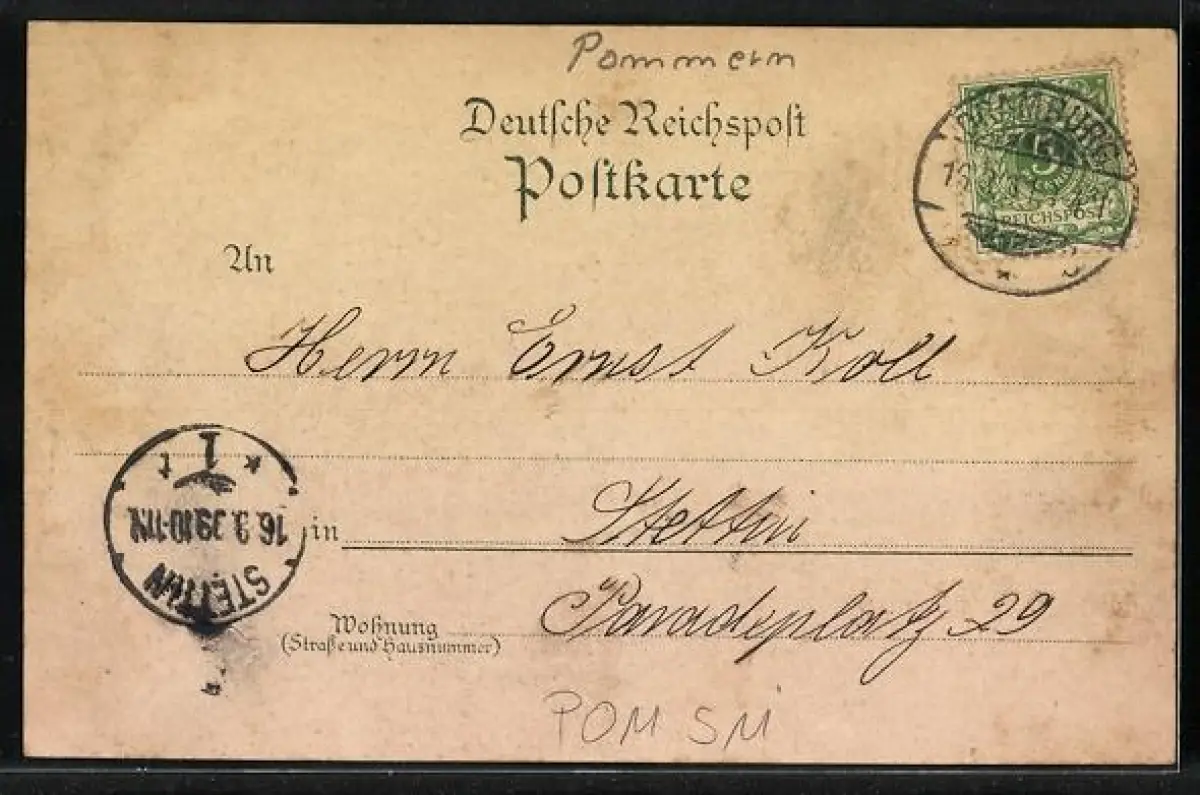 Pommern
Deutsche Reichspost
Postkarte
5
REICHSPOST
An
Herrn Ernst Koll
STETTIN
16.9.99.10-11N.
1 t
in Stettin
Wohnung
(Straße und Hausnummer)
Paradeplatz 29
POM SM